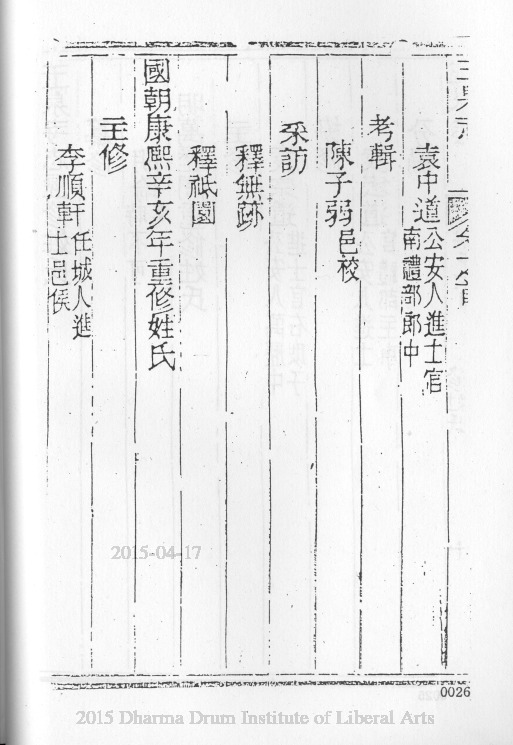 袁中道公安人進士官南禮部郎中
考輯
陳子弱邑校
采訪
釋無跡
釋祇園
國朝康熙辛亥年重修姓氏
主修
李順軒任城人進士邑侯
2015-04-17
0026
2015 Dharma Drum Institute of Liberal Arts